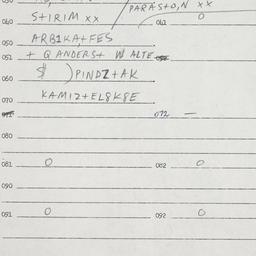 PARAST0,N xx
040 STIRIM xx 041 0
050 ARBIKA+FES
051 + Q ANDERS+ W ALTE
060 $ ) PINDZ+AK
070 KAMIZ+EL8K8E
072 —
080
081 0 082 0
090
091 0 092 0